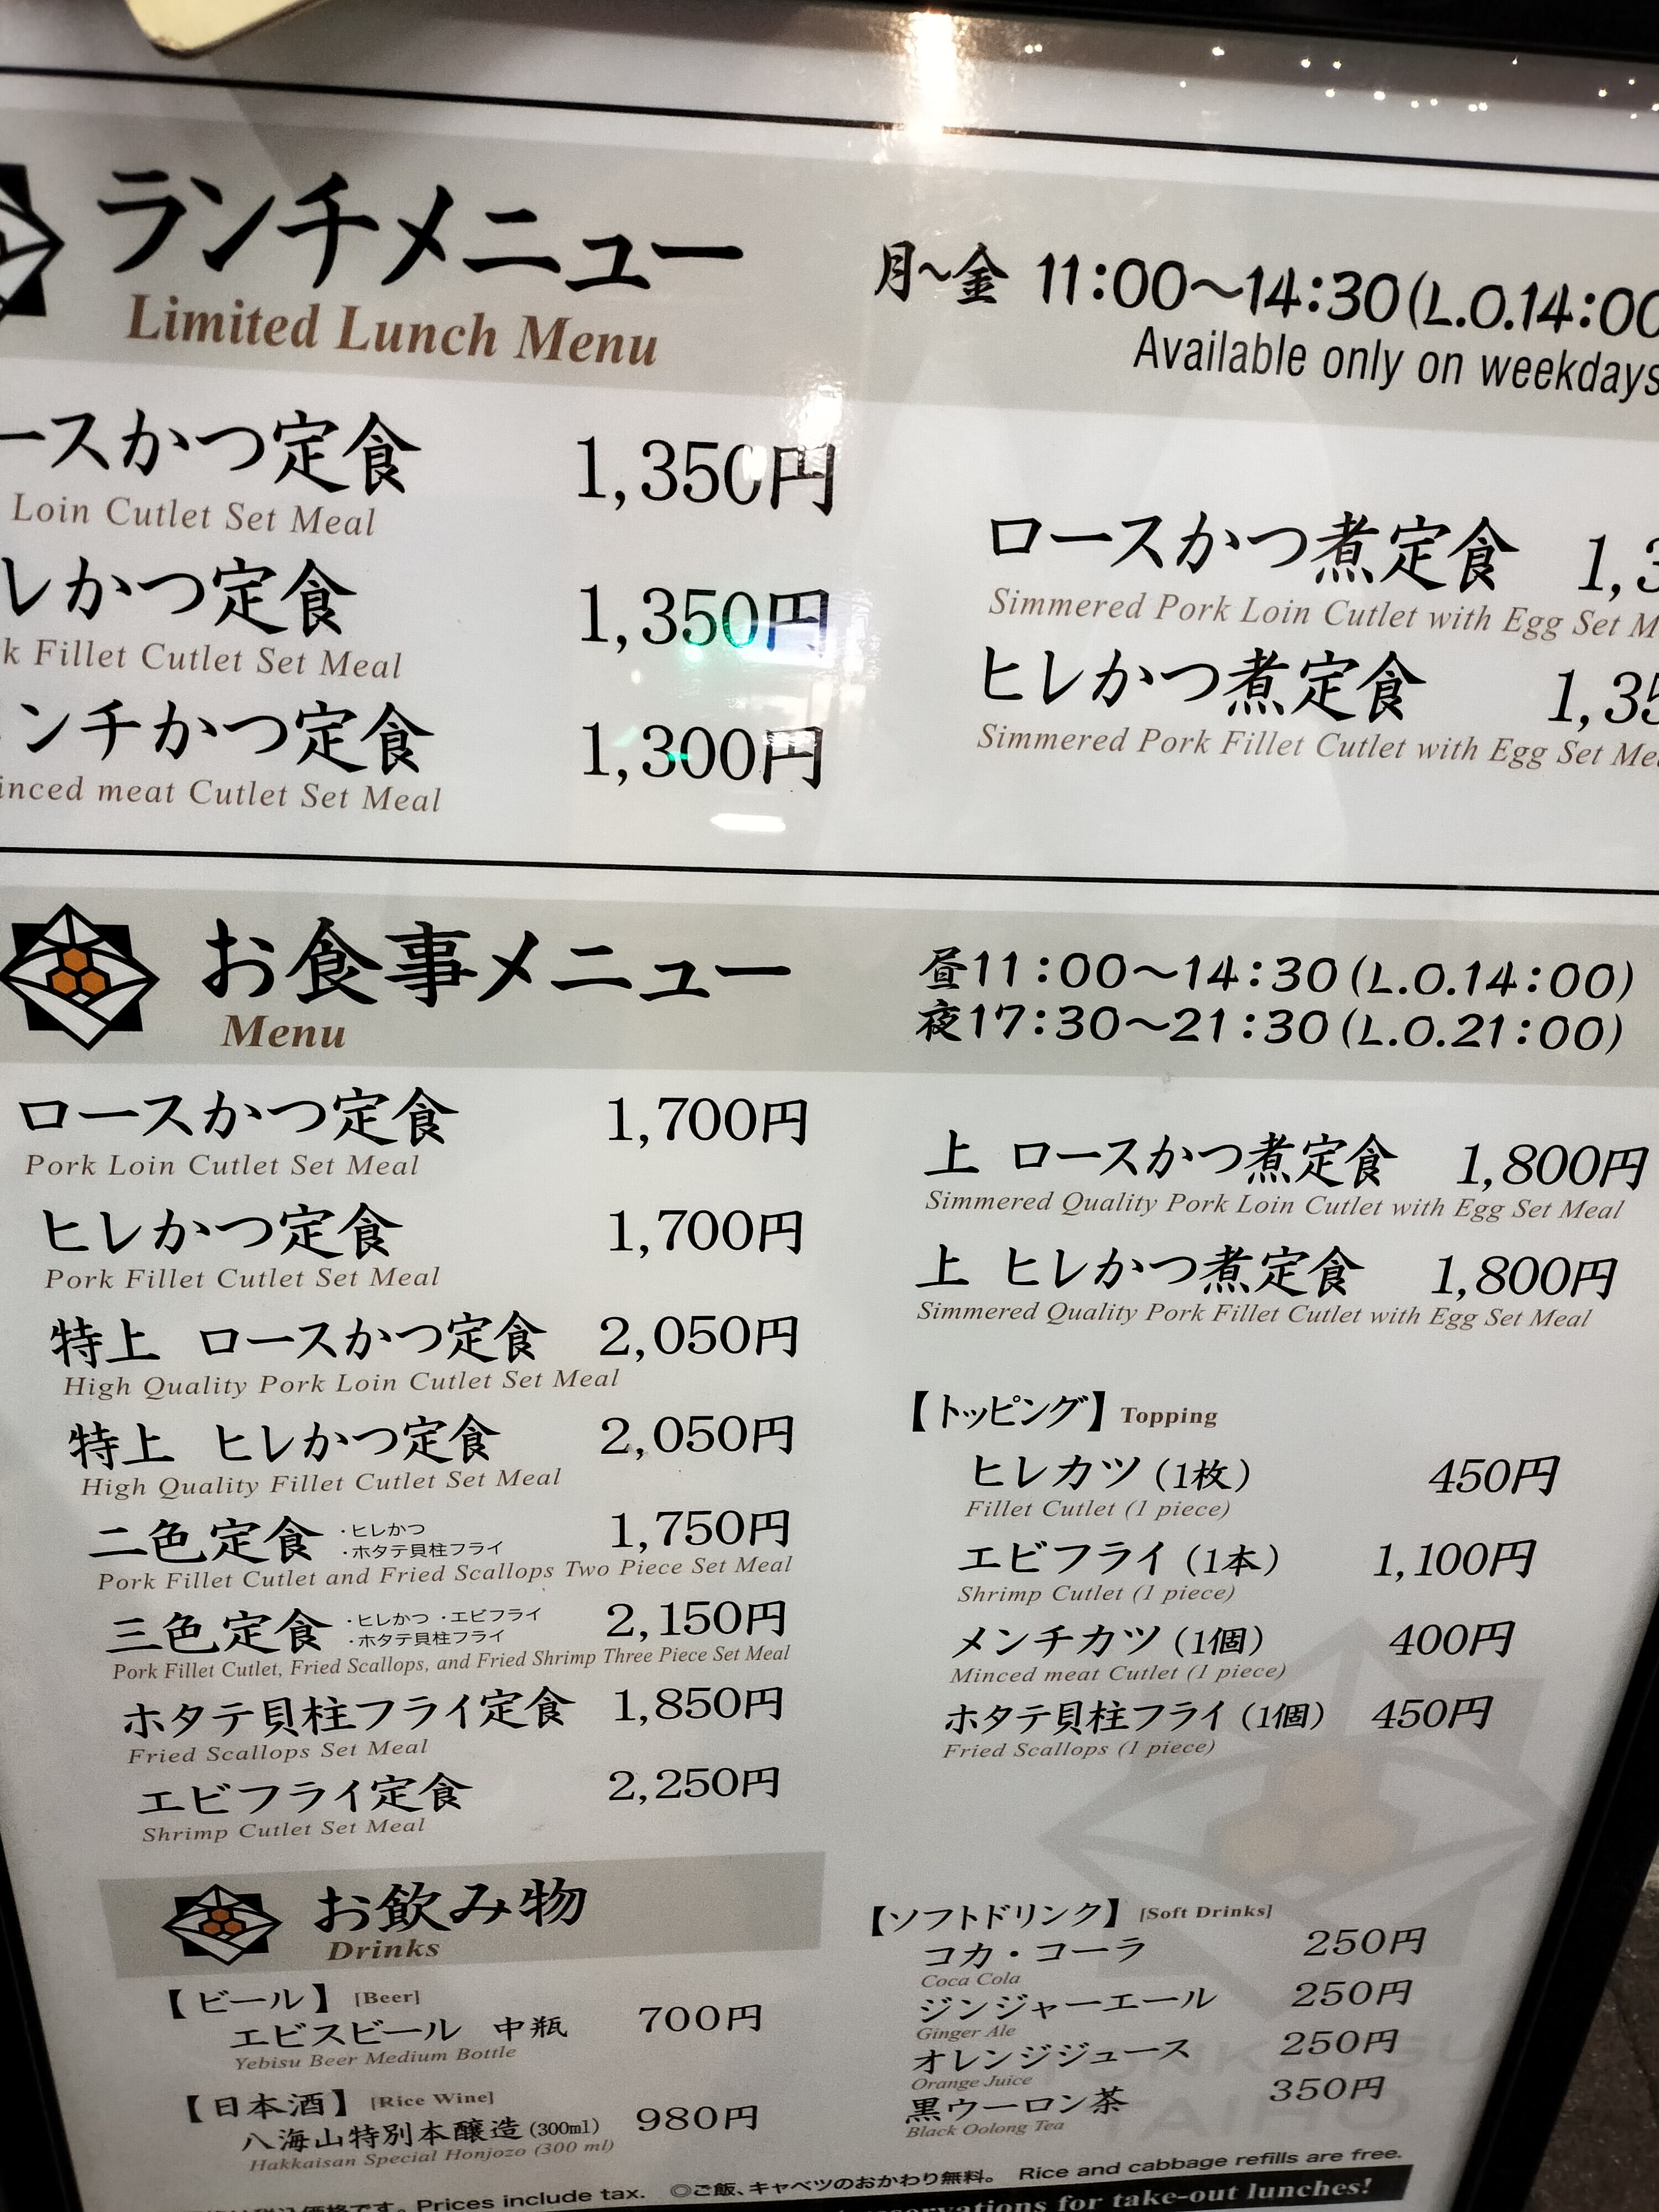 ランチメニュー
Limited Lunch Menu
月～金 11:00～14:30(L.O.14:00
Available only on weekdays
ースかつ定食 1,350円
Loin Cutlet Set Meal
レかつ定食 1,350円
k Fillet Cutlet Set Meal
ンチかつ定食 1,300円
inced meat Cutlet Set Meal
ロースかつ煮定食 1,3
Simmered Pork Loin Cutlet with Egg Set M
ヒレかつ煮定食 1,35
Simmered Pork Fillet Cutlet with Egg Set Me
お食事メニュー
Menu
昼11:00～14:30(L.O.14:00)
夜17:30～21:30(L.O.21:00)
ロースかつ定食 1,700円
Pork Loin Cutlet Set Meal
ヒレかつ定食 1,700円
Pork Fillet Cutlet Set Meal
特上 ロースかつ定食 2,050円
High Quality Pork Loin Cutlet Set Meal
特上 ヒレかつ定食 2,050円
High Quality Fillet Cutlet Set Meal
二色定食 ・ヒレかつ ・ホタテ貝柱フライ 1,750円
Pork Fillet Cutlet and Fried Scallops Two Piece Set Meal
三色定食 ・ヒレかつ ・エビフライ ・ホタテ貝柱フライ 2,150円
Pork Fillet Cutlet, Fried Scallops, and Fried Shrimp Three Piece Set Meal
ホタテ貝柱フライ定食 1,850円
Fried Scallops Set Meal
エビフライ定食 2,250円
Shrimp Cutlet Set Meal
上 ロースかつ煮定食 1,800円
Simmered Quality Pork Loin Cutlet with Egg Set Meal
上 ヒレかつ煮定食 1,800円
Simmered Quality Pork Fillet Cutlet with Egg Set Meal
【トッピング】Topping
ヒレカツ(1枚) 450円
Fillet Cutlet (1 piece)
エビフライ(1本) 1,100円
Shrimp Cutlet (1 piece)
メンチカツ(1個) 400円
Minced meat Cutlet (1 piece)
ホタテ貝柱フライ(1個) 450円
Fried Scallops (1 piece)
お飲み物
Drinks
【ビール】[Beer]
エビスビール 中瓶 700円
Yebisu Beer Medium Bottle
【日本酒】[Rice Wine]
八海山特別本醸造(300ml) 980円
Hakkaisan Special Honjozo (300 ml)
【ソフトドリンク】[Soft Drinks]
コカ・コーラ 250円
Coca Cola
ジンジャーエール 250円
Ginger Ale
オレンジジュース 250円
Orange Juice
黒ウーロン茶 350円
Black Oolong Tea
税込価格です。Prices include tax. ◎ご飯、キャベツのおかわり無料。 Rice and cabbage refills are free.
reservations for take-out lunches!